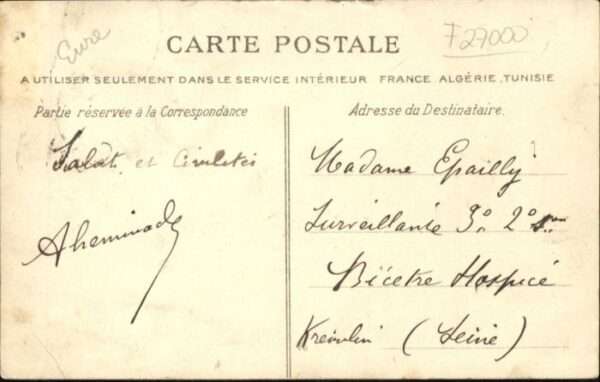 Eure
F27000
CARTE POSTALE
A UTILISER SEULEMENT DANS LE SERVICE INTÉRIEUR FRANCE ALGÉRIE, TUNISIE
Partie réservée à la Correspondance
Adresse du Destinataire.
Salut et Civilités
Madame Epailly
Surveillante 3º 2º
Bicètre Hospice
Kremlin (Seine)